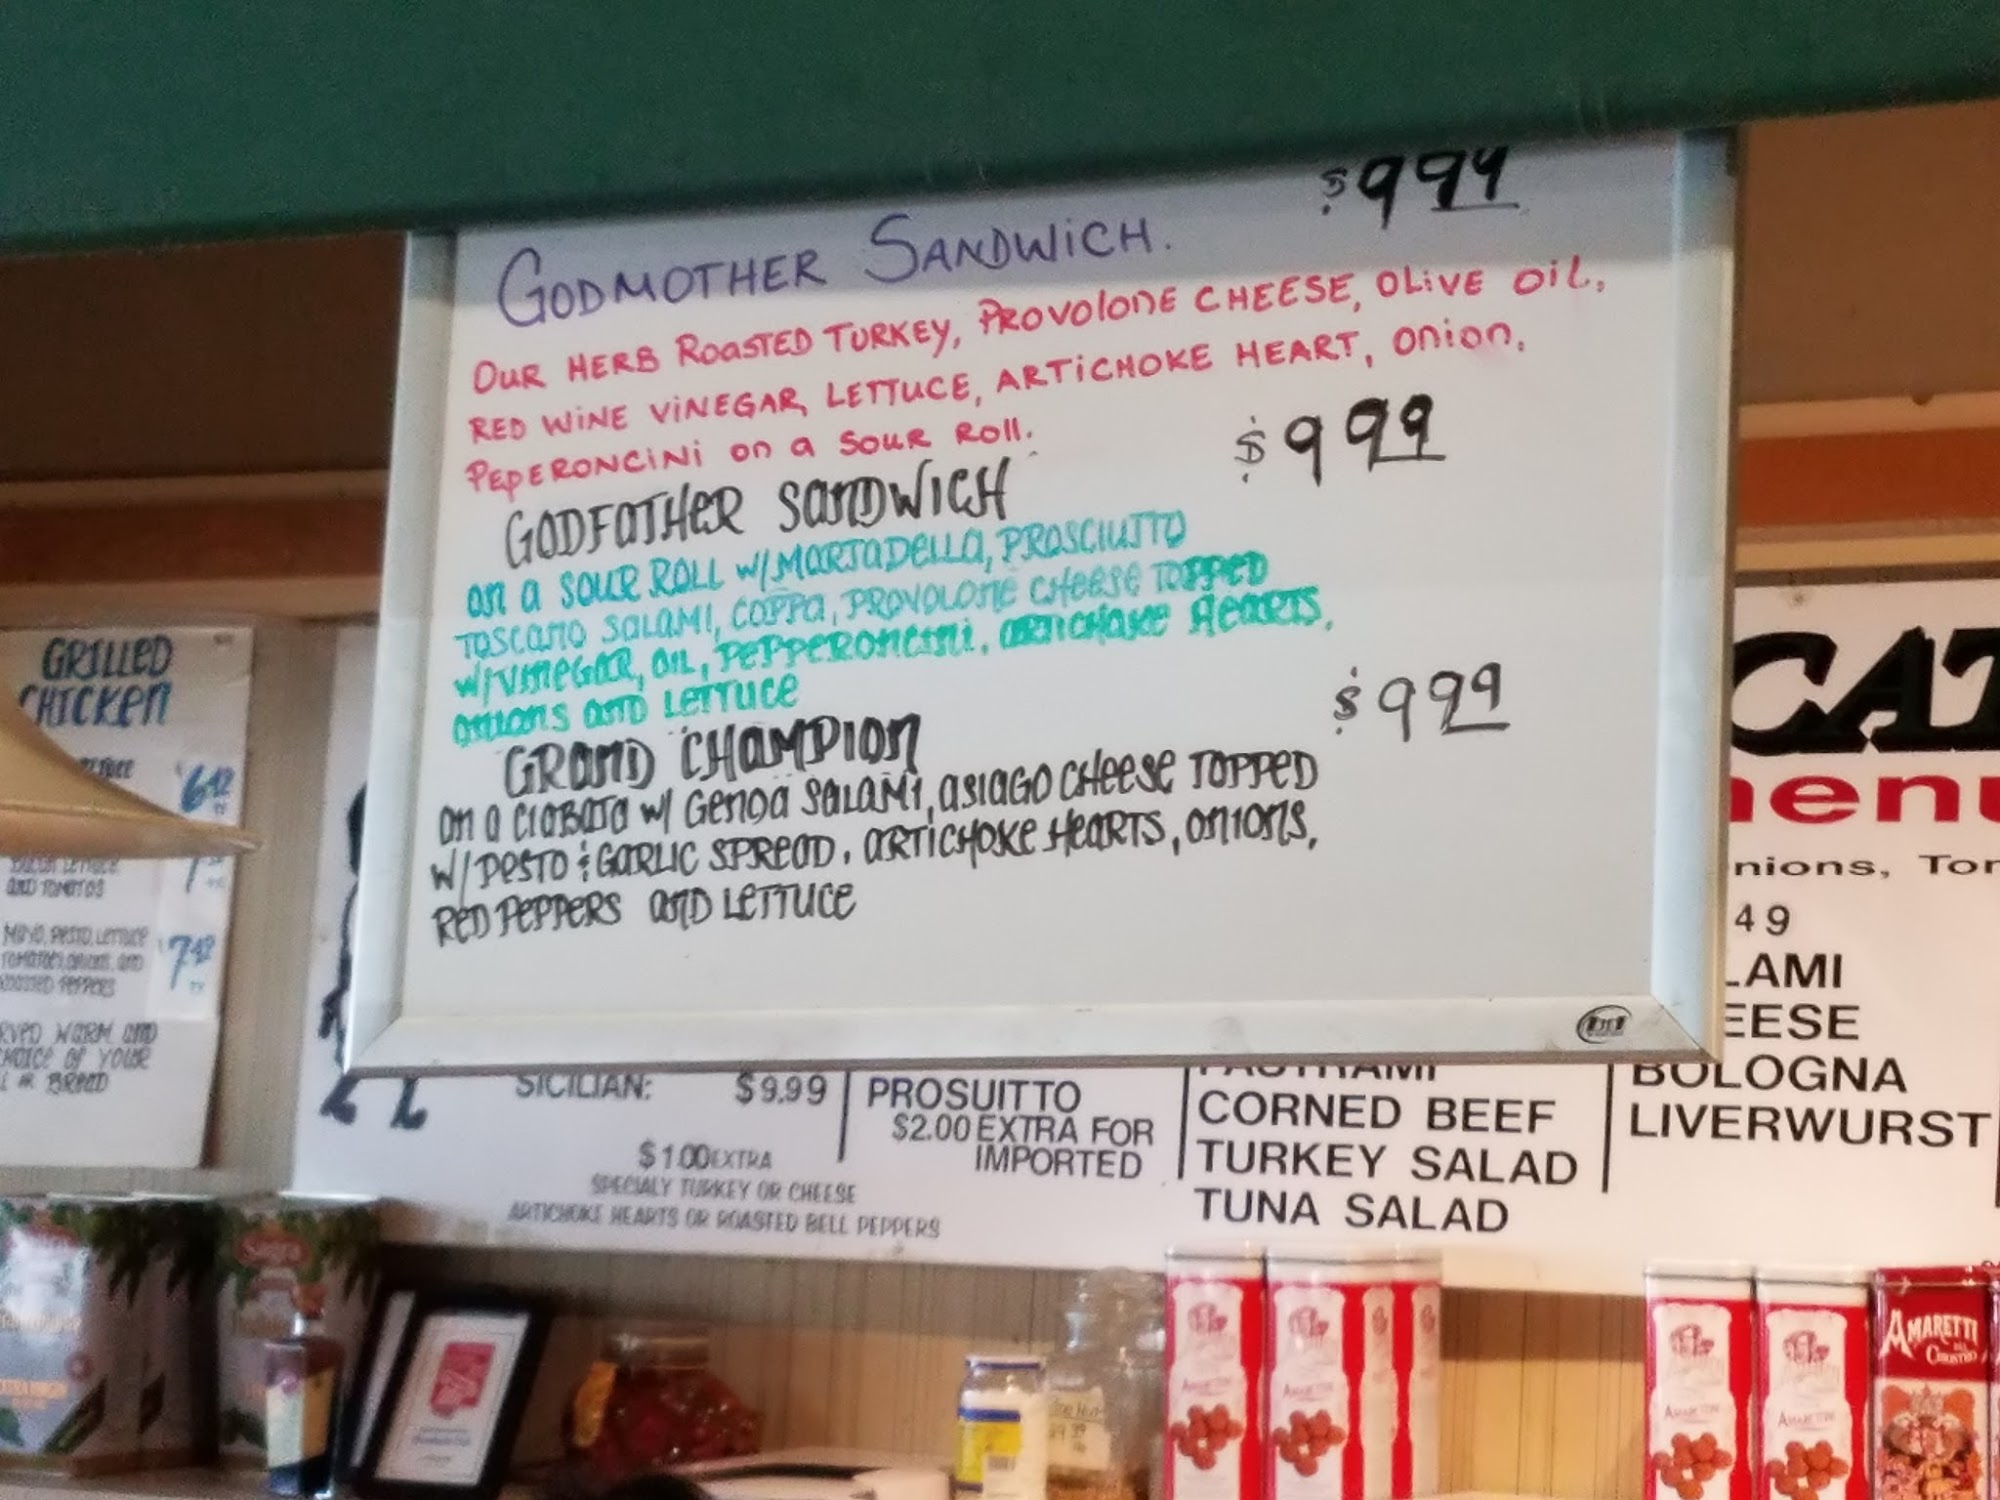 $9 99
GODMOTHER SANDWICH.
OUR HERB ROASTED TURKEY, PROVOLONE CHEESE, OLIVE OIL,
RED WINE VINEGAR, LETTUCE, ARTICHOKE HEART, ONION,
PEPERONCINI ON A SOUR ROLL.
$9 99
GODFATHER SANDWICH
ON A SOUR ROLL W/MORTADELLA, PROSCIUTTO
TOSCANO SALAMI, COPPA, PROVOLONE CHEESE TOPPED
W/VINEGAR, OIL, PEPPERONCINI, ARTICHOKE HEARTS,
ONIONS AND LETTUCE
$9 99
GRAND CHAMPION
ON A CIABATA W/ GENOA SALAMI, ASIAGO CHEESE TOPPED
W/PESTO & GARLIC SPREAD, ARTICHOKE HEARTS, ONIONS,
RED PEPPERS AND LETTUCE
GRILLED
CHICKEN
AND TOMATOS
MAYO, PESTO, LETTUCE
TOMATOES, ONIONS, AND
ROASTED PEPPERS
WARM AND
OF YOUR
BREAD
SICILIAN: $9.99
$1.00 EXTRA
SPECIALY TURKEY OR CHEESE
ARTICHOKE HEARTS OR ROASTED BELL PEPPERS
PROSUITTO
$2.00 EXTRA FOR
IMPORTED
PASTRAMI
CORNED BEEF
TURKEY SALAD
TUNA SALAD
CAT
enu
nions, Tor
49
LAMI
EESE
BOLOGNA
LIVERWURST
AMARETTI
AMARETTI
AMARETTI
AMARETTI
AMARETTI
DEL
CHIOSTRO